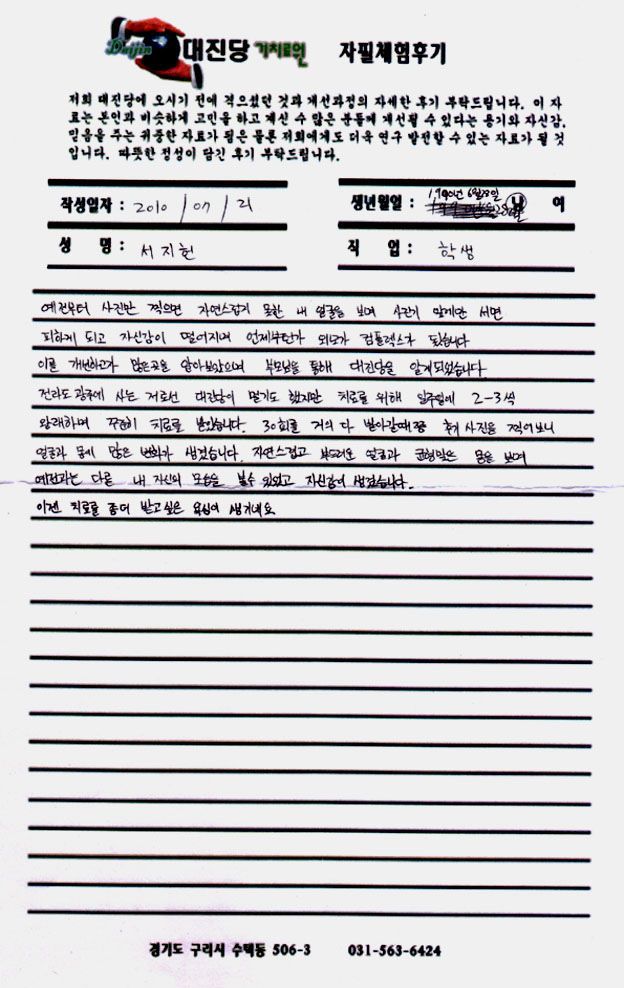 Daijin 대진당 기치료원 자필체험후기
저희 대진당에 오시기 전에 겪으셨던 것과 개선과정의 자세한 후기 부탁드립니다. 이 자
료는 본인과 비슷하게 고민을 하고 계신 수 많은 분들께 개선될 수 있다는 용기와 자신감,
믿음을 주는 귀중한 자료가 됨은 물론 저희에게도 더욱 연구 발전할 수 있는 자료가 될 것
입니다. 따뜻한 정성이 담긴 후기 부탁드립니다.
작성일자 : 2010 / 07 / 21
생년월일 : 1990년 6월28일 남 여
성 명 : 서지헌
직 업 : 학생
예전부터 사진만 찍으면 자연스럽지 못한 내 얼굴을 보며 사진기 앞에만 서면
피하게 되고 자신감이 떨어지며 언제부턴가 외모가 컴플렉스가 되었습니다
이를 개선하고자 많은곳을 알아보았으며 부모님을 통해 대진당을 알게되었습니다.
전라도 광주에 사는 저로선 대진당이 멀기도 했지만 치료를 위해 일주일에 2-3씩
왕래하며 꾸준히 치료를 받았습니다. 30회를 거의 다 받아갈때쯤 사진을 찍어보니
얼굴과 몸에 많은 변화가 생겼습니다. 자연스럽고 부드러운 얼굴과 균형잡힌 몸을 보며
예전과는 다른 내 자신의 모습을 볼수 있었고 자신감이 생겼습니다.
이젠 치료를 좀더 받고싶은 욕심이 생기네요
경기도 구리시 수택동 506-3 031-563-6424